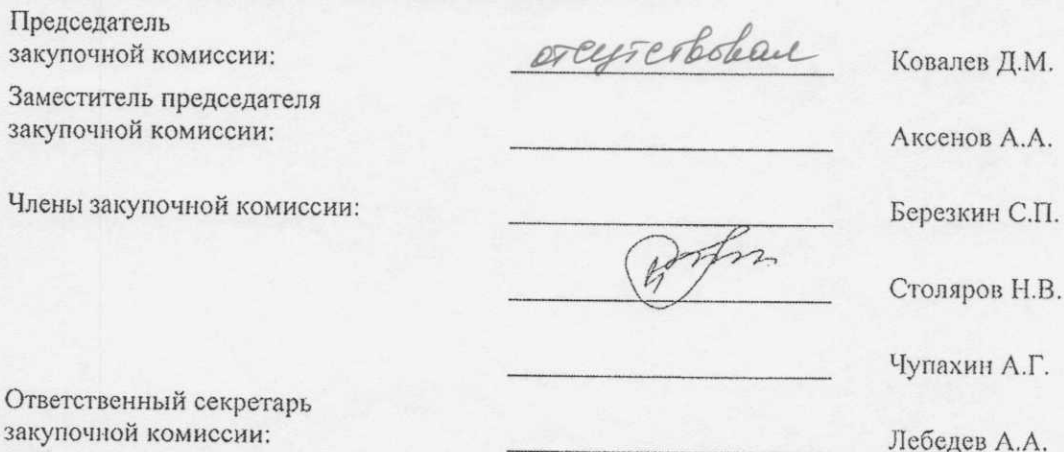 Председатель
закупочной комиссии:
отсутствовал
Ковалев Д.М.
Заместитель председателя
закупочной комиссии:
Аксенов А.А.
Члены закупочной комиссии:
Березкин С.П.
Столяров Н.В.
Чупахин А.Г.
Ответственный секретарь
закупочной комиссии:
Лебедев А.А.